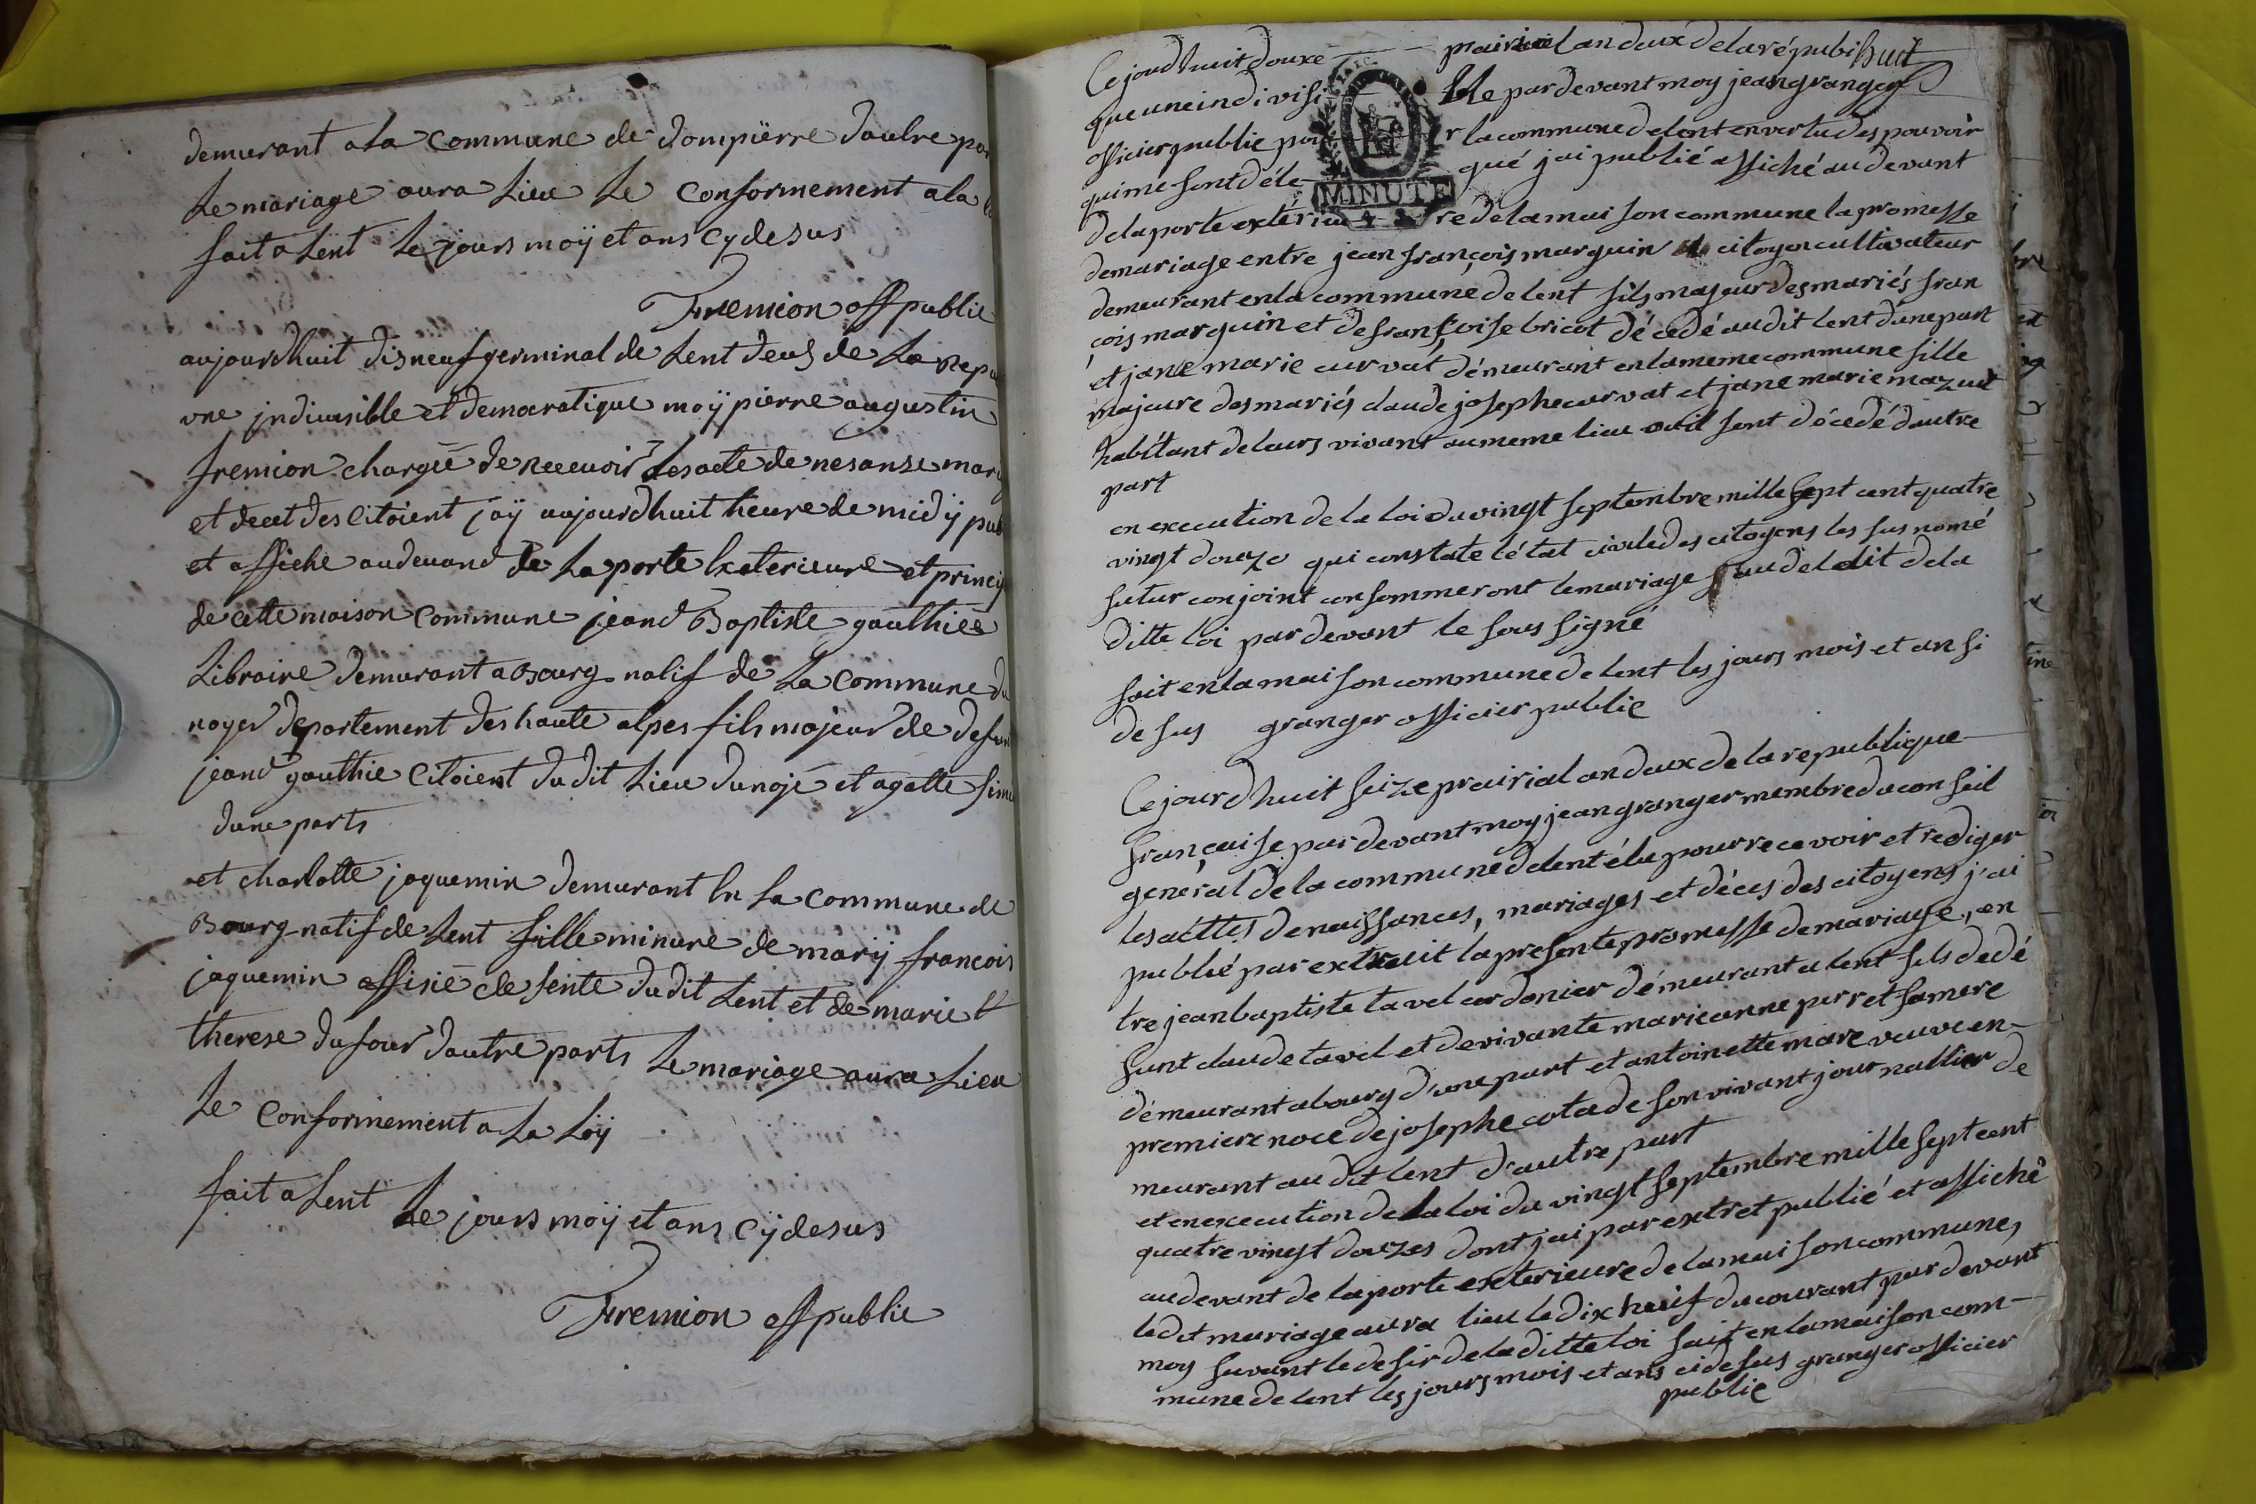 demurant a la commune de dompiërre daulre par
Le mariage aura Lieu Le conformement a la
fait a Lent Le jours moÿ et ans cy desus
Fremion off public
aujourdhuit disneuf germinal de Lent deus de La Repu
vne jndiuisible et democratique moÿ piërre augustin
fremion chargïé de receuoir les acte de nesanse mary
et decet des citoient jaÿ aujourdhuit heure de midÿ pub
et affiche audeuand de La porte Exterieure et princip
de cette maison commune jeand Baptiste gauthier
Libraire demurant a Bourg natif de La commune du
noyer departement des haute alpes fils majeur de defun
jeand gauthie citoient du dit Lieu du nojé et agatte sim
dune parts
et charlotte jaquemin demurant En La commune de
Bourg natif de Lent fille minure de marÿ francois
jaquemin offisié de sente du dit Lent et de marie
therese dufour dautre parts Le mariage aura Lieu
Le conformement a La Loÿ
fait a Lent Le jours moÿ et ans cÿ desus
Fremion off public
huit
Ce jourdhuit douxe prairial an deux de la républi
que une indivisible par devant moy jean granger
officier public pour la commune de lent en vertu des pouvoir
qui me sont délegué jai publié affiché au devant
de la porte extérieure de la maison commune la promesse
de mariage entre jean françois marguin citoyen cultivateur
demeurant en la commune de lent fils majeur des mariés fran
çois marguin et de françoise bricot décedé audit lent d'une part
et jane marie curvat démeurant en la meme commune fille
majeure des mariés claude josephe curvat et jane marie mazuit
habitant de leurs vivant au meme lieu ou il sont décedé dautre
part
en execution de la loi du vingt septembre mille sept cent quatre
vingt douze qui constate l'état civile des citoyens les sus nomé
futur conjoint consommeront le mariage au deledit de la
ditte loi par devant le sous signé
fait en la maison commune de lent les jours mois et an si
desus granger officier public
Ce jourdhuit seize prairial an deux de la republique
française par devant moy jean granger membre du conseil
general de la commune de lent élu pour recevoir et rediger
les acttes de naissances, mariages et déces des citoyens j'ai
publié par extrait la presente promesse de mariage, en
tre jean baptiste tavel cordonier démeurant a lent fils de dé
funt claude tavel et de vivante marieanne perret sa mere
démeurant a bourg d'une part et antoinette mare veuve en
premiere noce de josephe cotade son vivant journallier de
meurant au dit lent d'autre part
et en execution de la loi du vingt septembre mille sept cent
quatre vingt douzes dont jai par extret publié et affiché
au devant de la porte exterieure de la maison commune,
le dit mariage aura lieu le dix huit du courant par devant
moy suvant le desir de la ditte loi fait en la maison com
mune de lent les jours mois et ans ci desus granger officier
public
MINUTE